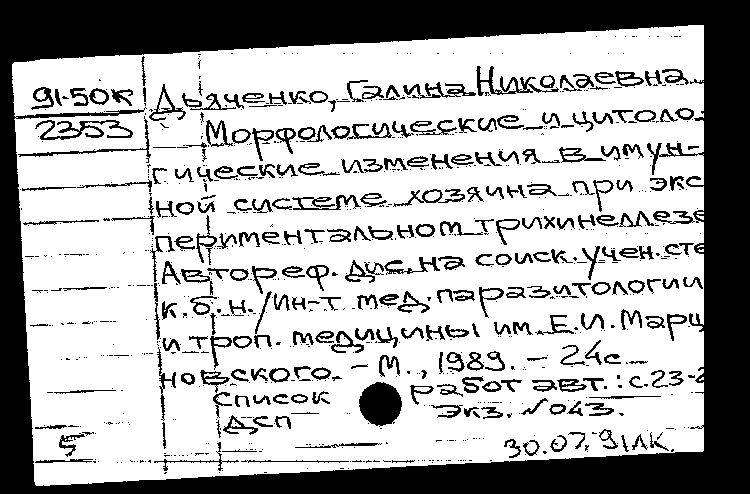 91-50к Дьяченко, Галина Николаевна.
2353 Морфологические и цитоло-
гические изменения в имун-
ной системе хозяина при экс
периментальном трихинеллезе
Автореф. дис. на соиск. учен. сте
к.б.н./Ин-т мед. паразитологии
и троп. медицины им. Е.И. Марц
новского. - М., 1989. - 24с
список работ авт.: с.23-2
ДСП экз. №043.
5 30.07.91АК.